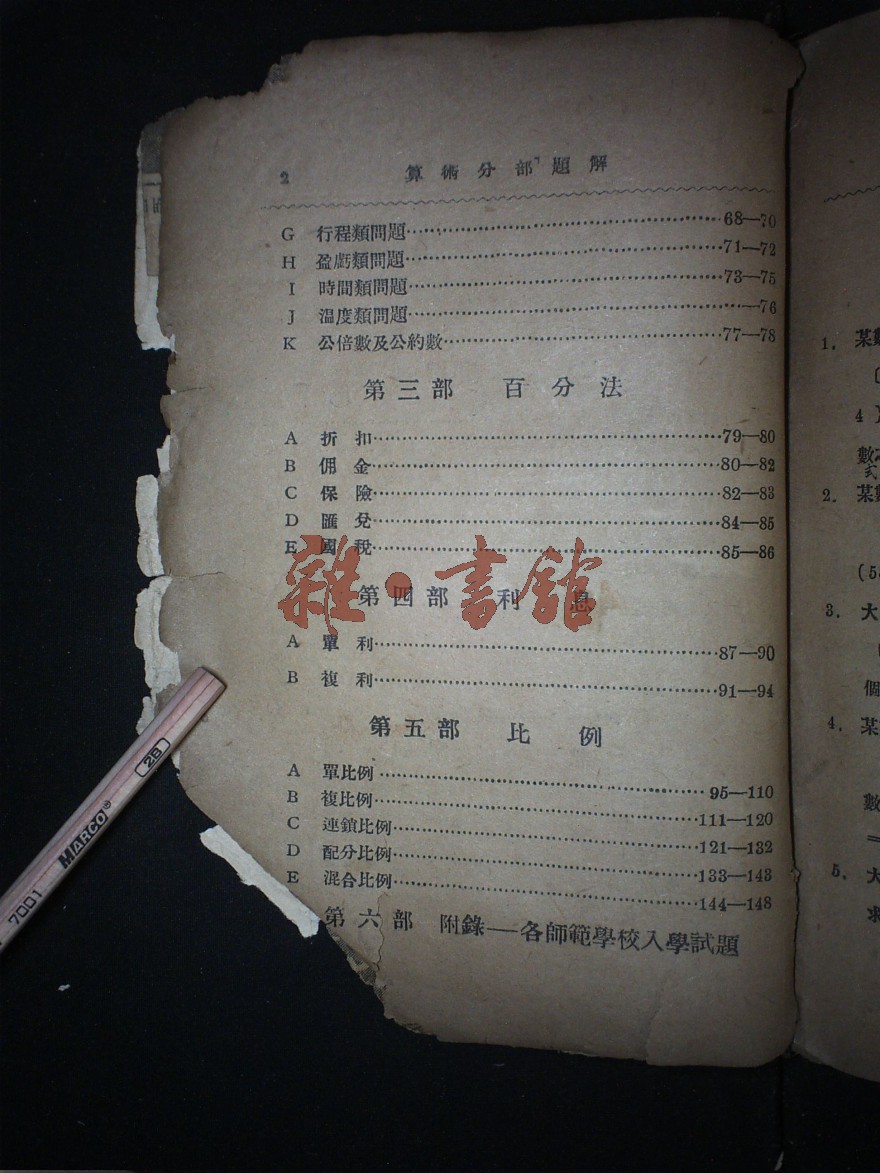 2 算術分部題解
G 行程類問題 68—70
H 盈虧類問題 71—72
I 時間類問題 73—75
J 溫度類問題 —76
K 公倍數及公約數 77—78
第三部 百分法
A 折扣 79—80
B 佣金 80—82
C 保險 82—83
D 匯兌 84—85
E 國稅 85—86
第四部 利息
A 單利 87—90
B 複利 91—94
第五部 比例
A 單比例 95—110
B 複比例 111—120
C 連鎖比例 121—132
D 配分比例 133—143
E 混合比例 144—148
第六部 附錄—各師範學校入學試題
雜·書館
7001 MARCO® 2B
1. 某
4
數
2. 某
3. 大
個
4. 某
數
5. 大
求